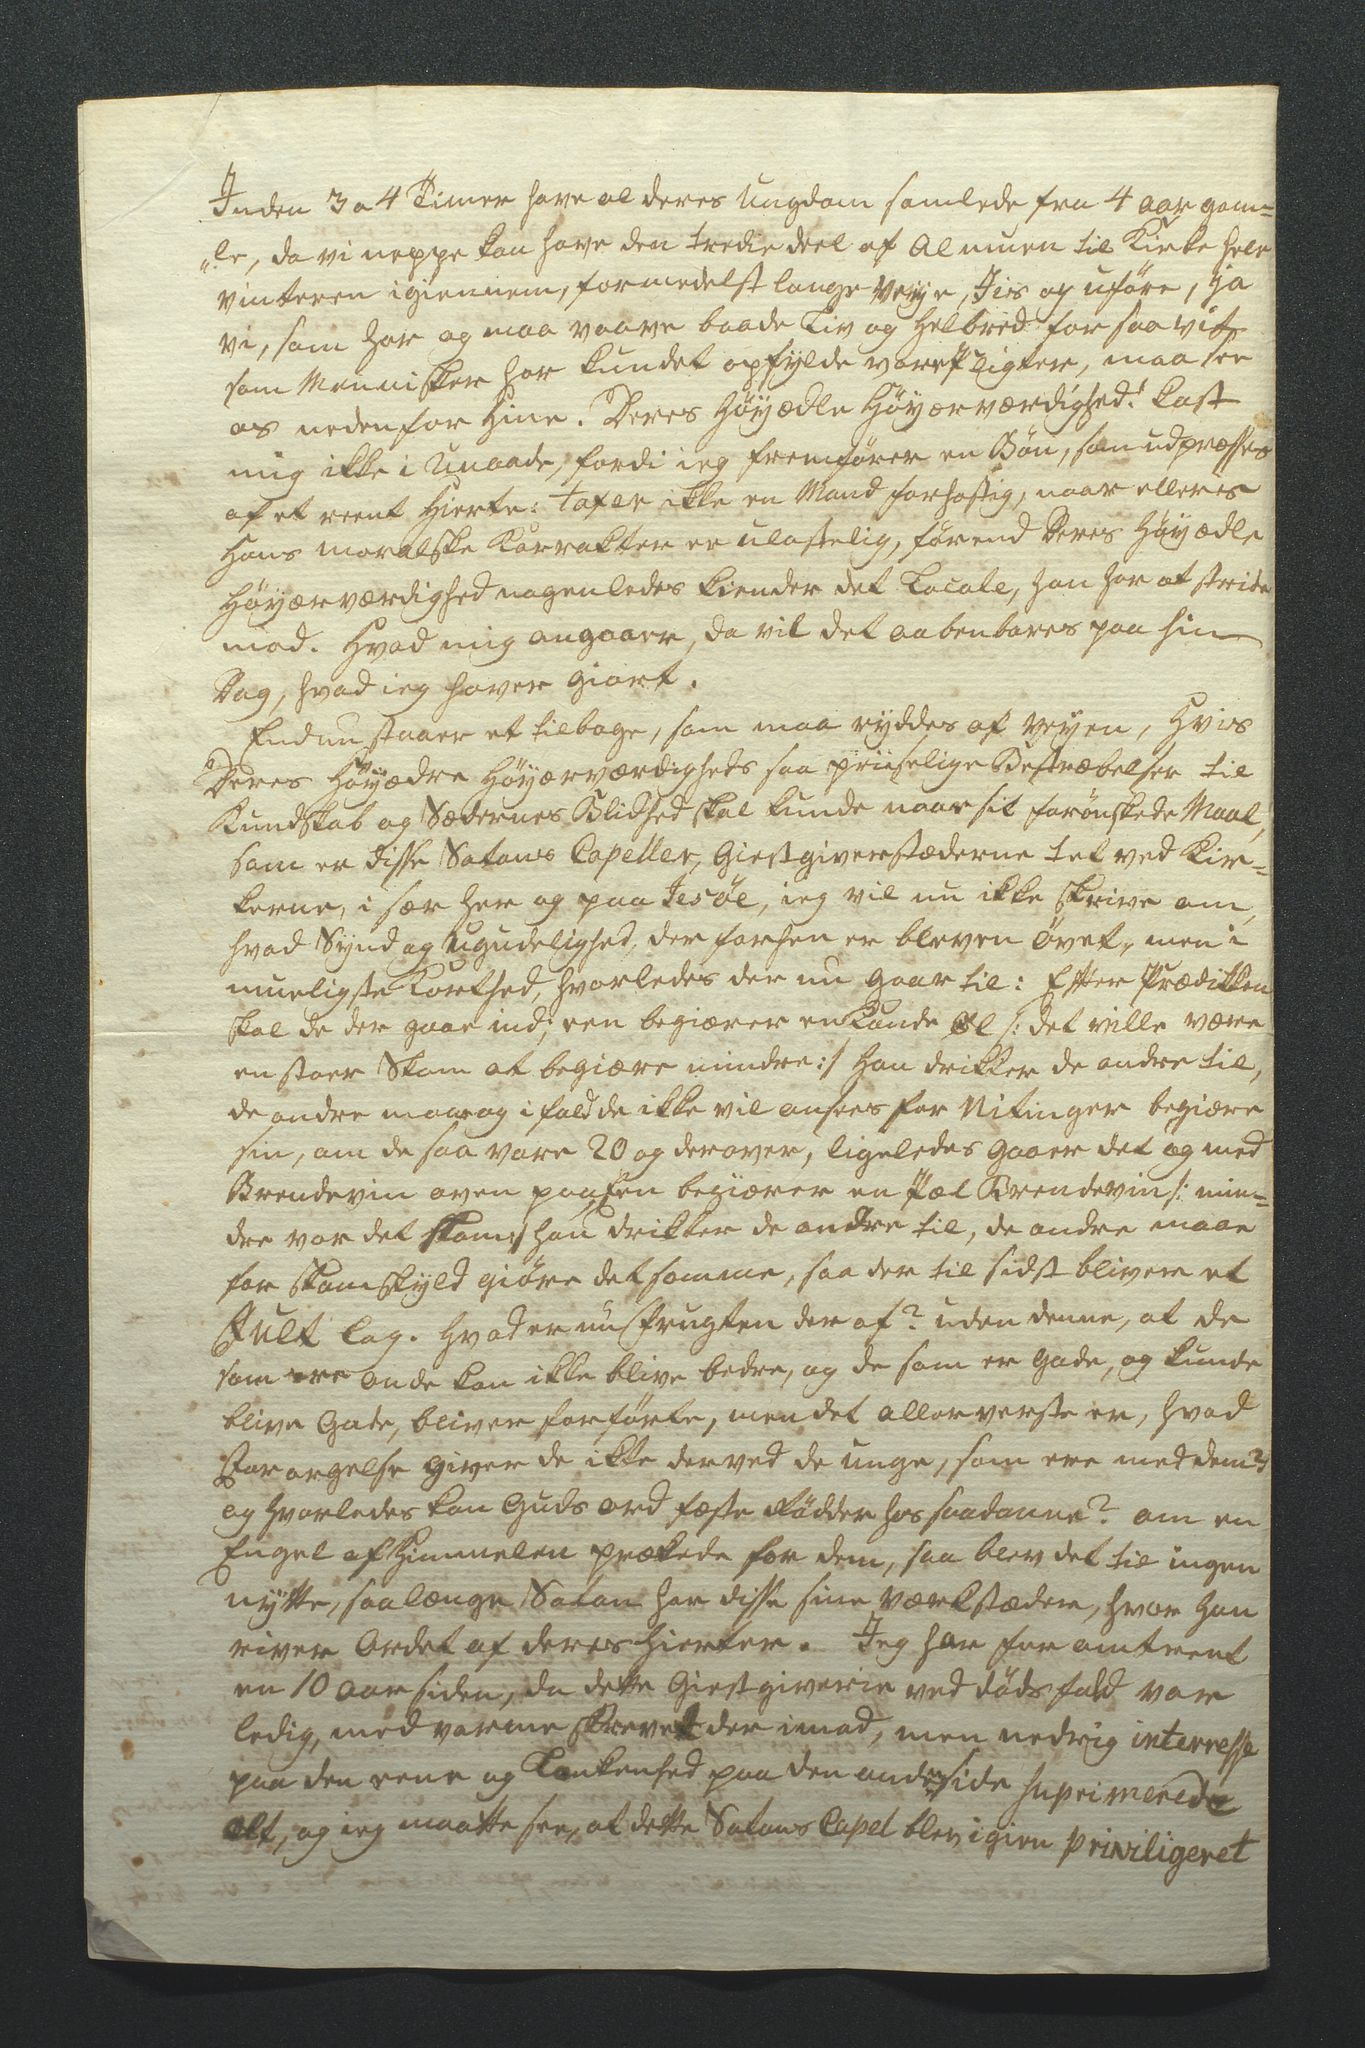 Inden 3 a 4 Timer have al deres Ungdom samlede fra 4 aar gam-
"le, da vi neppe kan have den tredie deel af Almuen til Kirke hele
vinteren igiennem, formedelst lange Veÿe, Iis og uføre, ja
vi, som har og maa vaave baade Liv og Helbred for saa vit
som Mennisker har kundet opfylde vore Pligter, maa see
os nedenfor Hine. Deres Høÿædle Høÿærværdighed! Kast
mig ikke i Unaade, fordi ieg fremfører en Bøn, som udpresses
af et reent Hierte: tag ikke en Mand forhastig, naar ellers
Hans moralske Karrakter er ulastelig, førend Deres Høÿædle
Høÿærværdighed nogenledes kiender det Locale, han har at stride
mod. Hvad mig angaaer, da vil det aabenbares paa hin
Dag, hvad ieg haver giort.
Endnu staaer et tilbage, som maa ryddes af Veÿen, Hvis
Deres Høÿædre Høÿærværdigheds saa priiselige Bestræbelser til
Kundskab og Sædernes Blidhed skal kunde naar sit forønskede Maal,
som er disse Satans Capeller, Giestgiverstæderne tet ved Kir-
kerne, i sær her og paa Jesøe, ieg vil nu ikke skrive om,
hvad Synd og Ugudelighed, der forhen er bleven øvet, men i
mueligste Korthed, hvorledes der nu gaar til: Efter Prædikken
skal de der gaae ind; een begiærer en Kande Øl /: det ville være
en stoer Skam at begiære mindre :/ Han drikker de andre til,
de andre maae og ifald de ikke vil ansees for Nitinger begiære
sin, om de saa vare 20 og derover, ligeledes gaaer det og med
Brendevin oven paa, Een begiærer en Pæl Brendevin /: min-
dre var det skam :/ han drikker de andre til, de andre maae
for skamskyld giøre det samme, saa der til sidst bliver et
Fult Lag. Hvad er nu frugten der af? uden denne, at de
som ere onde kan ikke blive bedre, og de som er gode, og kunde
blive Gode, bliver forførte, men det allerverste er, hvad
Forargelse giver de ikke derved de unge, som ere med dem?
og hvorledes kan Guds ord fæste Rødder hos saadanne? om en
Engel af Himmelen prækede for dem, saa blev det til ingen
nytte, saalænge Satan har disse sine Værkstæder, hvor han
river Ordet af deres Hierter. Jeg har for omtrent
en 10 aar siden, da dette Giestgiverie ved dødsfald var
ledig, med varme skrevet der imod, men nedrig interresse
paa den eene og Lonkenhed paa den anden side suprimerede
alt, og ieg maatte see, at dette Satans Capel blev igien Priviligeret